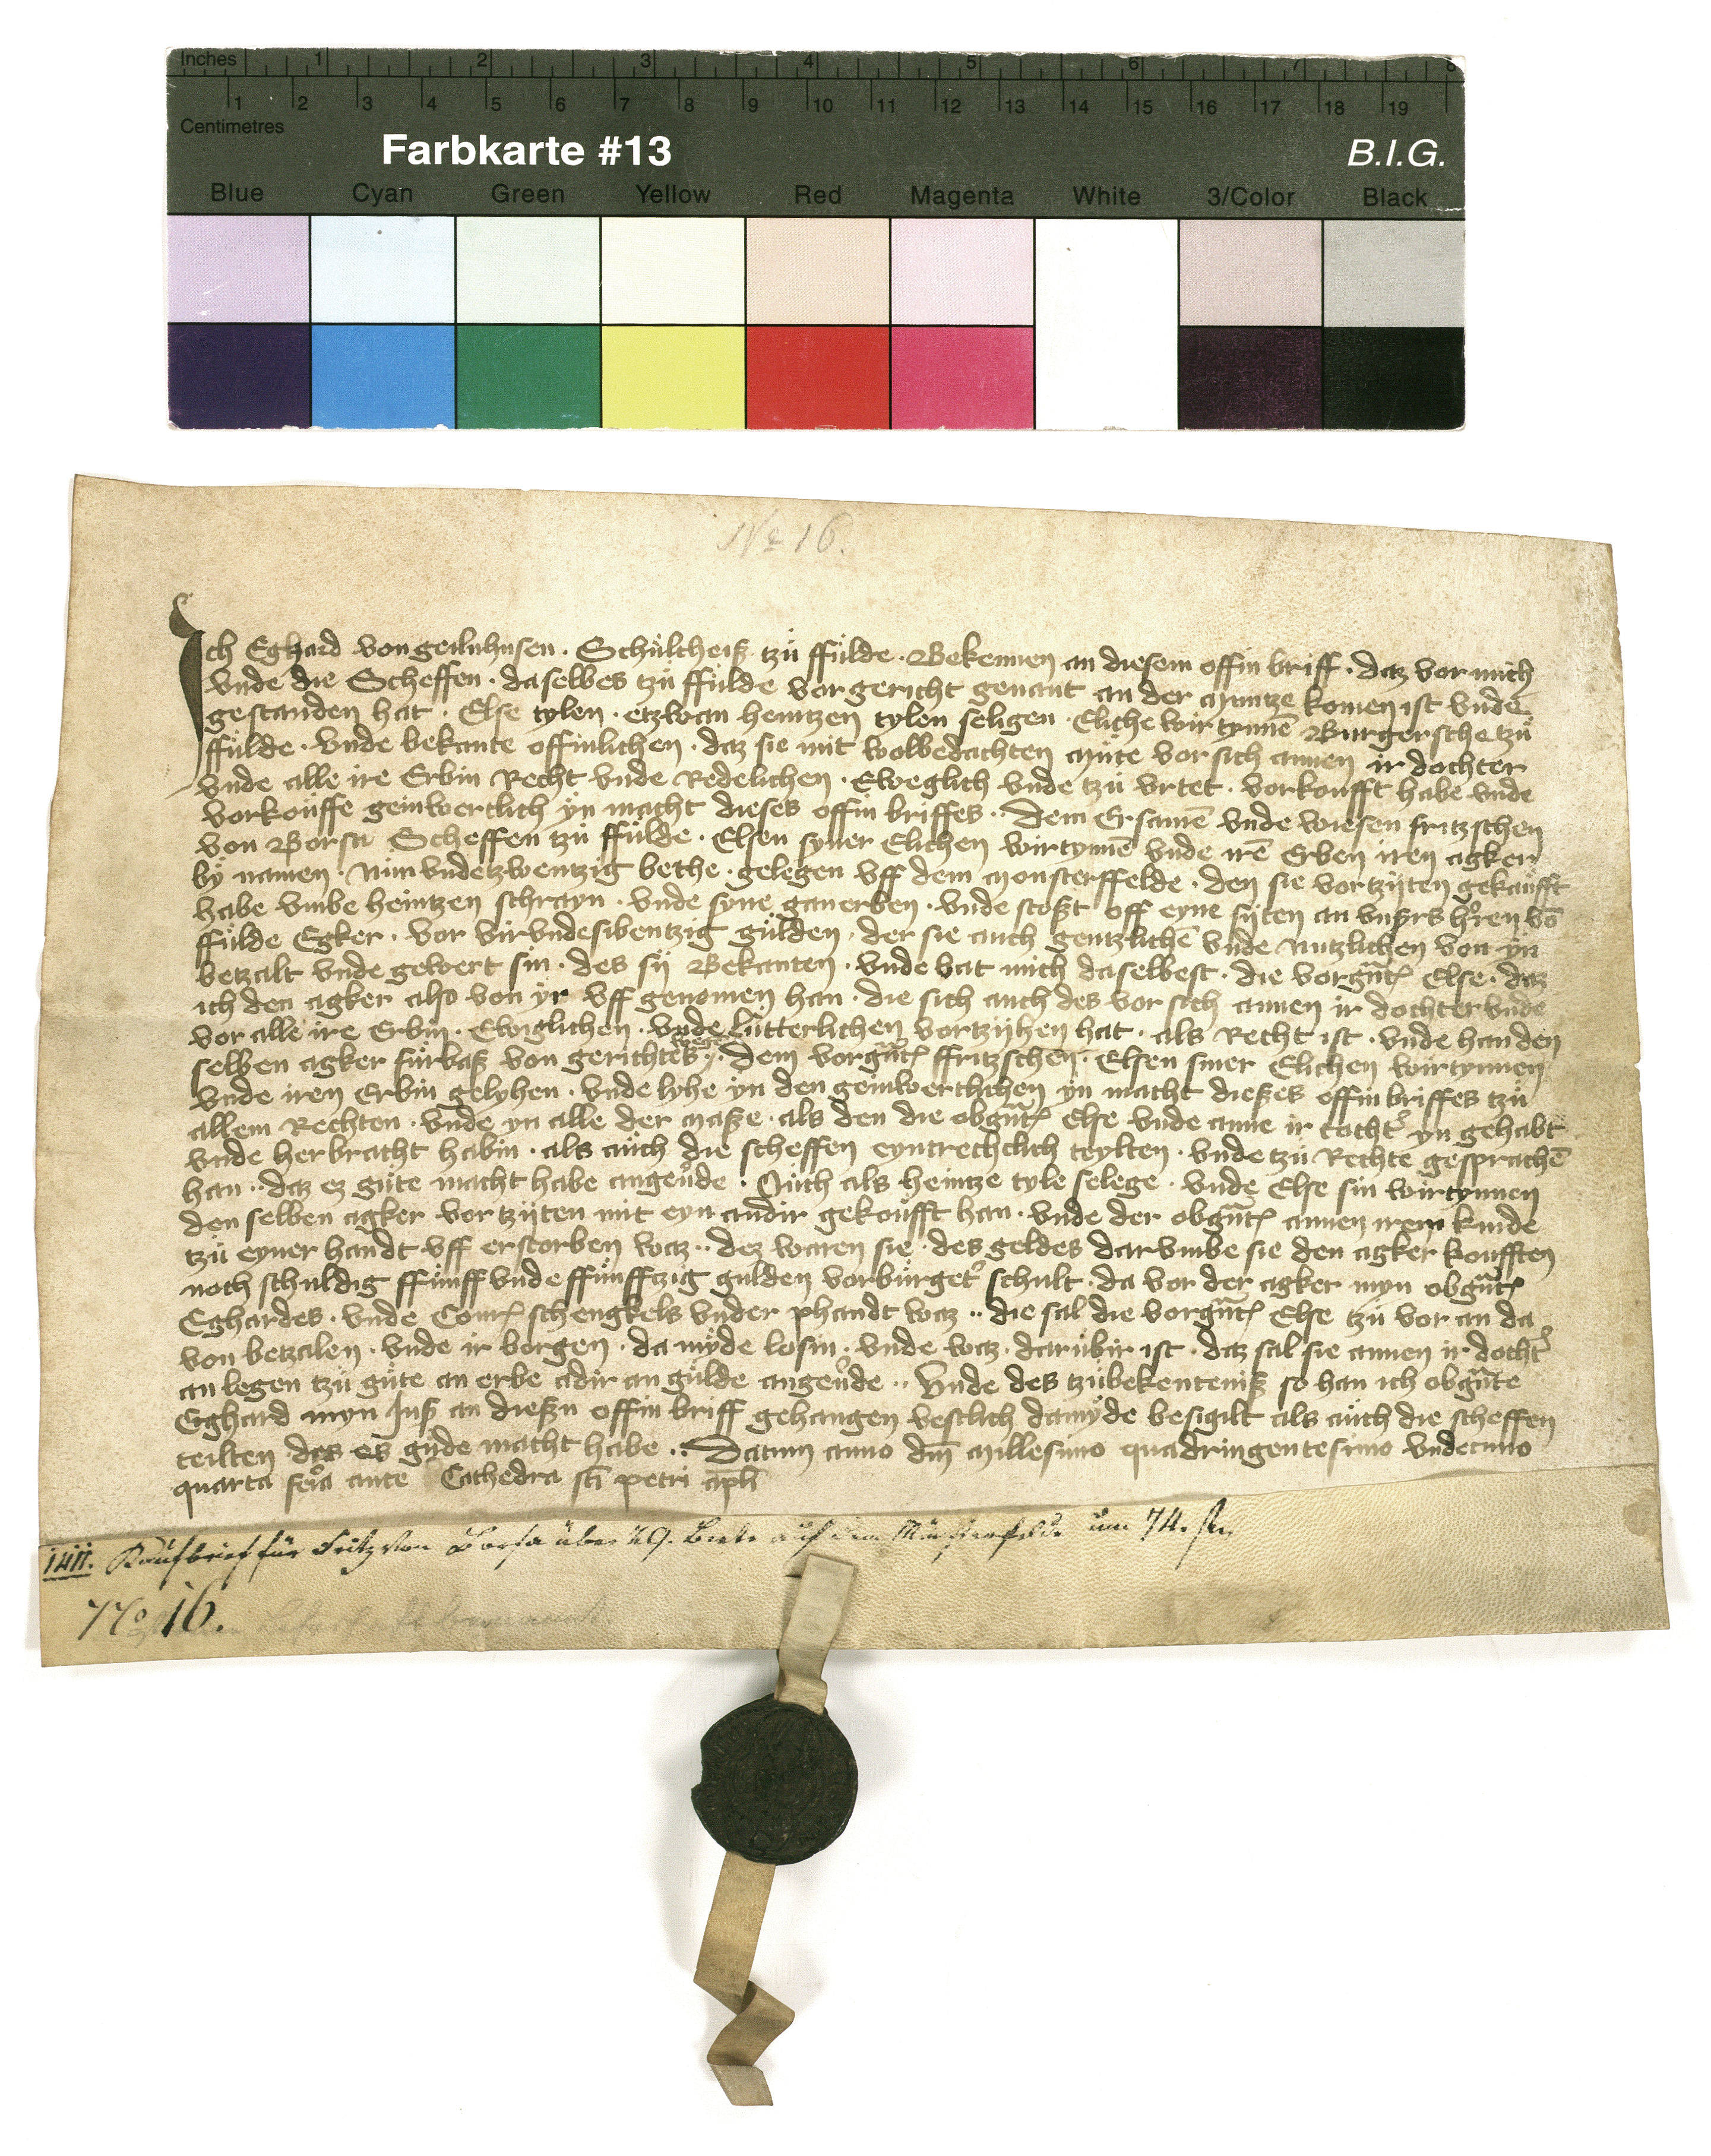 Inches 1 2 3 4 5 6 7 8
1 2 3 4 5 6 7 8 9 10 11 12 13 14 15 16 17 18 19
Centimetres
Farbkarte #13 B.I.G.
Blue Cyan Green Yellow Red Magenta White 3/Color Black
No 16.
Ich Eghard von geilnhusen · Schultheiß tzu ffulde · Bekennen an diesem offin briff · daz vor mich
vnde die Scheffen · daselbes tzu ffulde vor gericht genant an der Muntze komen ist vnde
gestanden hat · Else tylen · etzwan heintzen tylen seligen · Eliche wirtynnē Burgersche tzu
ffulde · vnde bekante offinlichen · daz sie mit wolbedachten mute vor sich annen ir dochter
vnde alle ire Erbin Recht vnde Redelichen · Eweglich vnde tzu vrtet · vorkoufft habe vnde
vorkouffe geinwertlich yn macht dieses offin briffes · Dem Ersamē vnde wiesen fritzschen
von Borsa Scheffen tzu ffulde · Elsen syner Elichen wirtynnē vnde irē Erben iren agker
by namen · Nun vndetzwentzig bethe · gelegen vff dem Monsterffelde · den sie vortzyten gekaufft
habe vmbe heintzen schrayn · vnde syne ganerben · vnde stoßt off eyne syten an vnßrs hren vō
ffulde Egker · vor virvndesibentzig gulden · der sie auch gentzlichē vnde nutzlichen von yn
betzalt vnde gewert sin · des sy Bekanten · vnde bat mich daselbest · die vorgnt Else · daz
ich den agker also von yr vff genomen han · die sich auch des vor sich annen ir dochter vnde
vor alle ire Erbin · Ewiglichen · vnde lutterlichen vortzyhen hat · als Recht ist · vnde han den
selben agker furbaß von gerichtes wege · dem vorgnt ffritzschen · Elsen siner Elichen wirtynnen
vnde iren Erbin gelyhen · vnde lyhe yn den geinwertlichen yn macht dießes offin briffes tzu
allem Rechten · vnde yn alle der Maße · als den die obgnt Else vnde anne ir tocht yn gehabt
vnde herbracht habin · als auch die scheffen eyntrechtlich teylten · vnde tzu Rechte gesprachē
han · daz ez gute macht habe angende · Ouch als heintze tyle selege · vnde Else sin wirtynnen
den selben agker vor tzyten mit eyn andir gekoufft han · vnde der obgnt annen irem kinde
tzu eyner handt vff erstorben waz · dez waren sie · des geldes darvmbe sie den agker koufften
noch schuldig ffunff vnde ffunffzig gulden vorburget schult · da vor der agker myn obgnt
Eghardes · vnde Conr schengkels vnder phandt waz · die sal die vorgnt Else tzu vor an da
von betzalen · vnde ir borgen · da myde losin · vnde waz · darubir ist · daz sal sie annen ir docht
an legen tzu gute an erbe adir an gulde angende · Vnde des tzubekenteniß so han ich obgnte
Eghard myn Inß an dießn offin briff gehangen vestlich damyde besigilt als auch die scheffen
teilten des es gude macht habe · Datum anno dm Millesimo quadringentesimo vndecimo
quarta feia ante Cathedra sti petri apli
1411. Kaufbrief für Fritz von Borsa über 29. Beete auf dem Münsterfelde um 74. fl.
No 16.